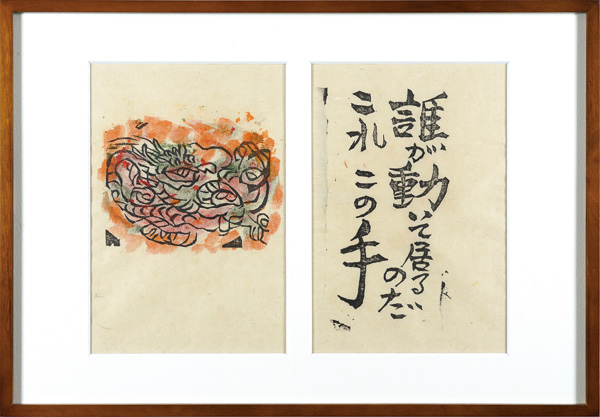 誰が動いて居るのだ
これ この手